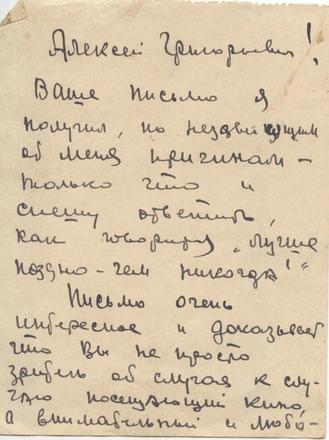 Алексей Григорьевич!
Ваше письмо я
получил, по независящим
от меня причинам –
только что и
спешу ответить,
как говорится „лучше
поздно – чем никогда!"
Письмо очень
интересное и доказывает
что Вы не просто
зритель от случая к слу-
чаю посещающий кино,
а внимательный и любо-